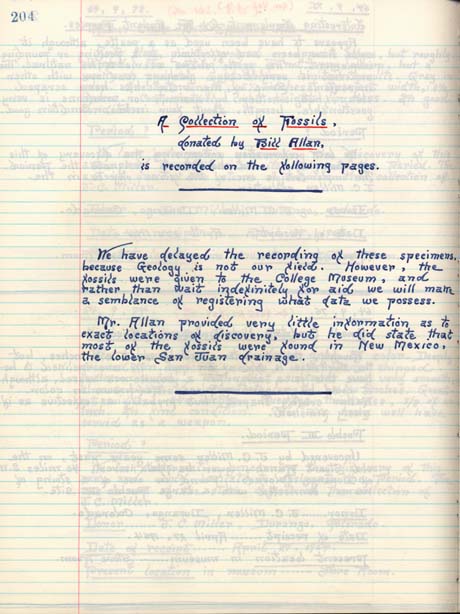 204
A Collection of Fossils,
donated by Bill Allan,
is recorded on the following pages.
We have delayed the recording of these specimens,
because Geology is not our field. However, the
fossils were given to the College Museum, and
rather than wait indefinitely for aid we will make
a semblance of registering what data we possess.
Mr. Allan provided very little information as to
exact locations of discovery, but he did state that
most of the fossils were found in New Mexico,
the lower San Juan drainage.